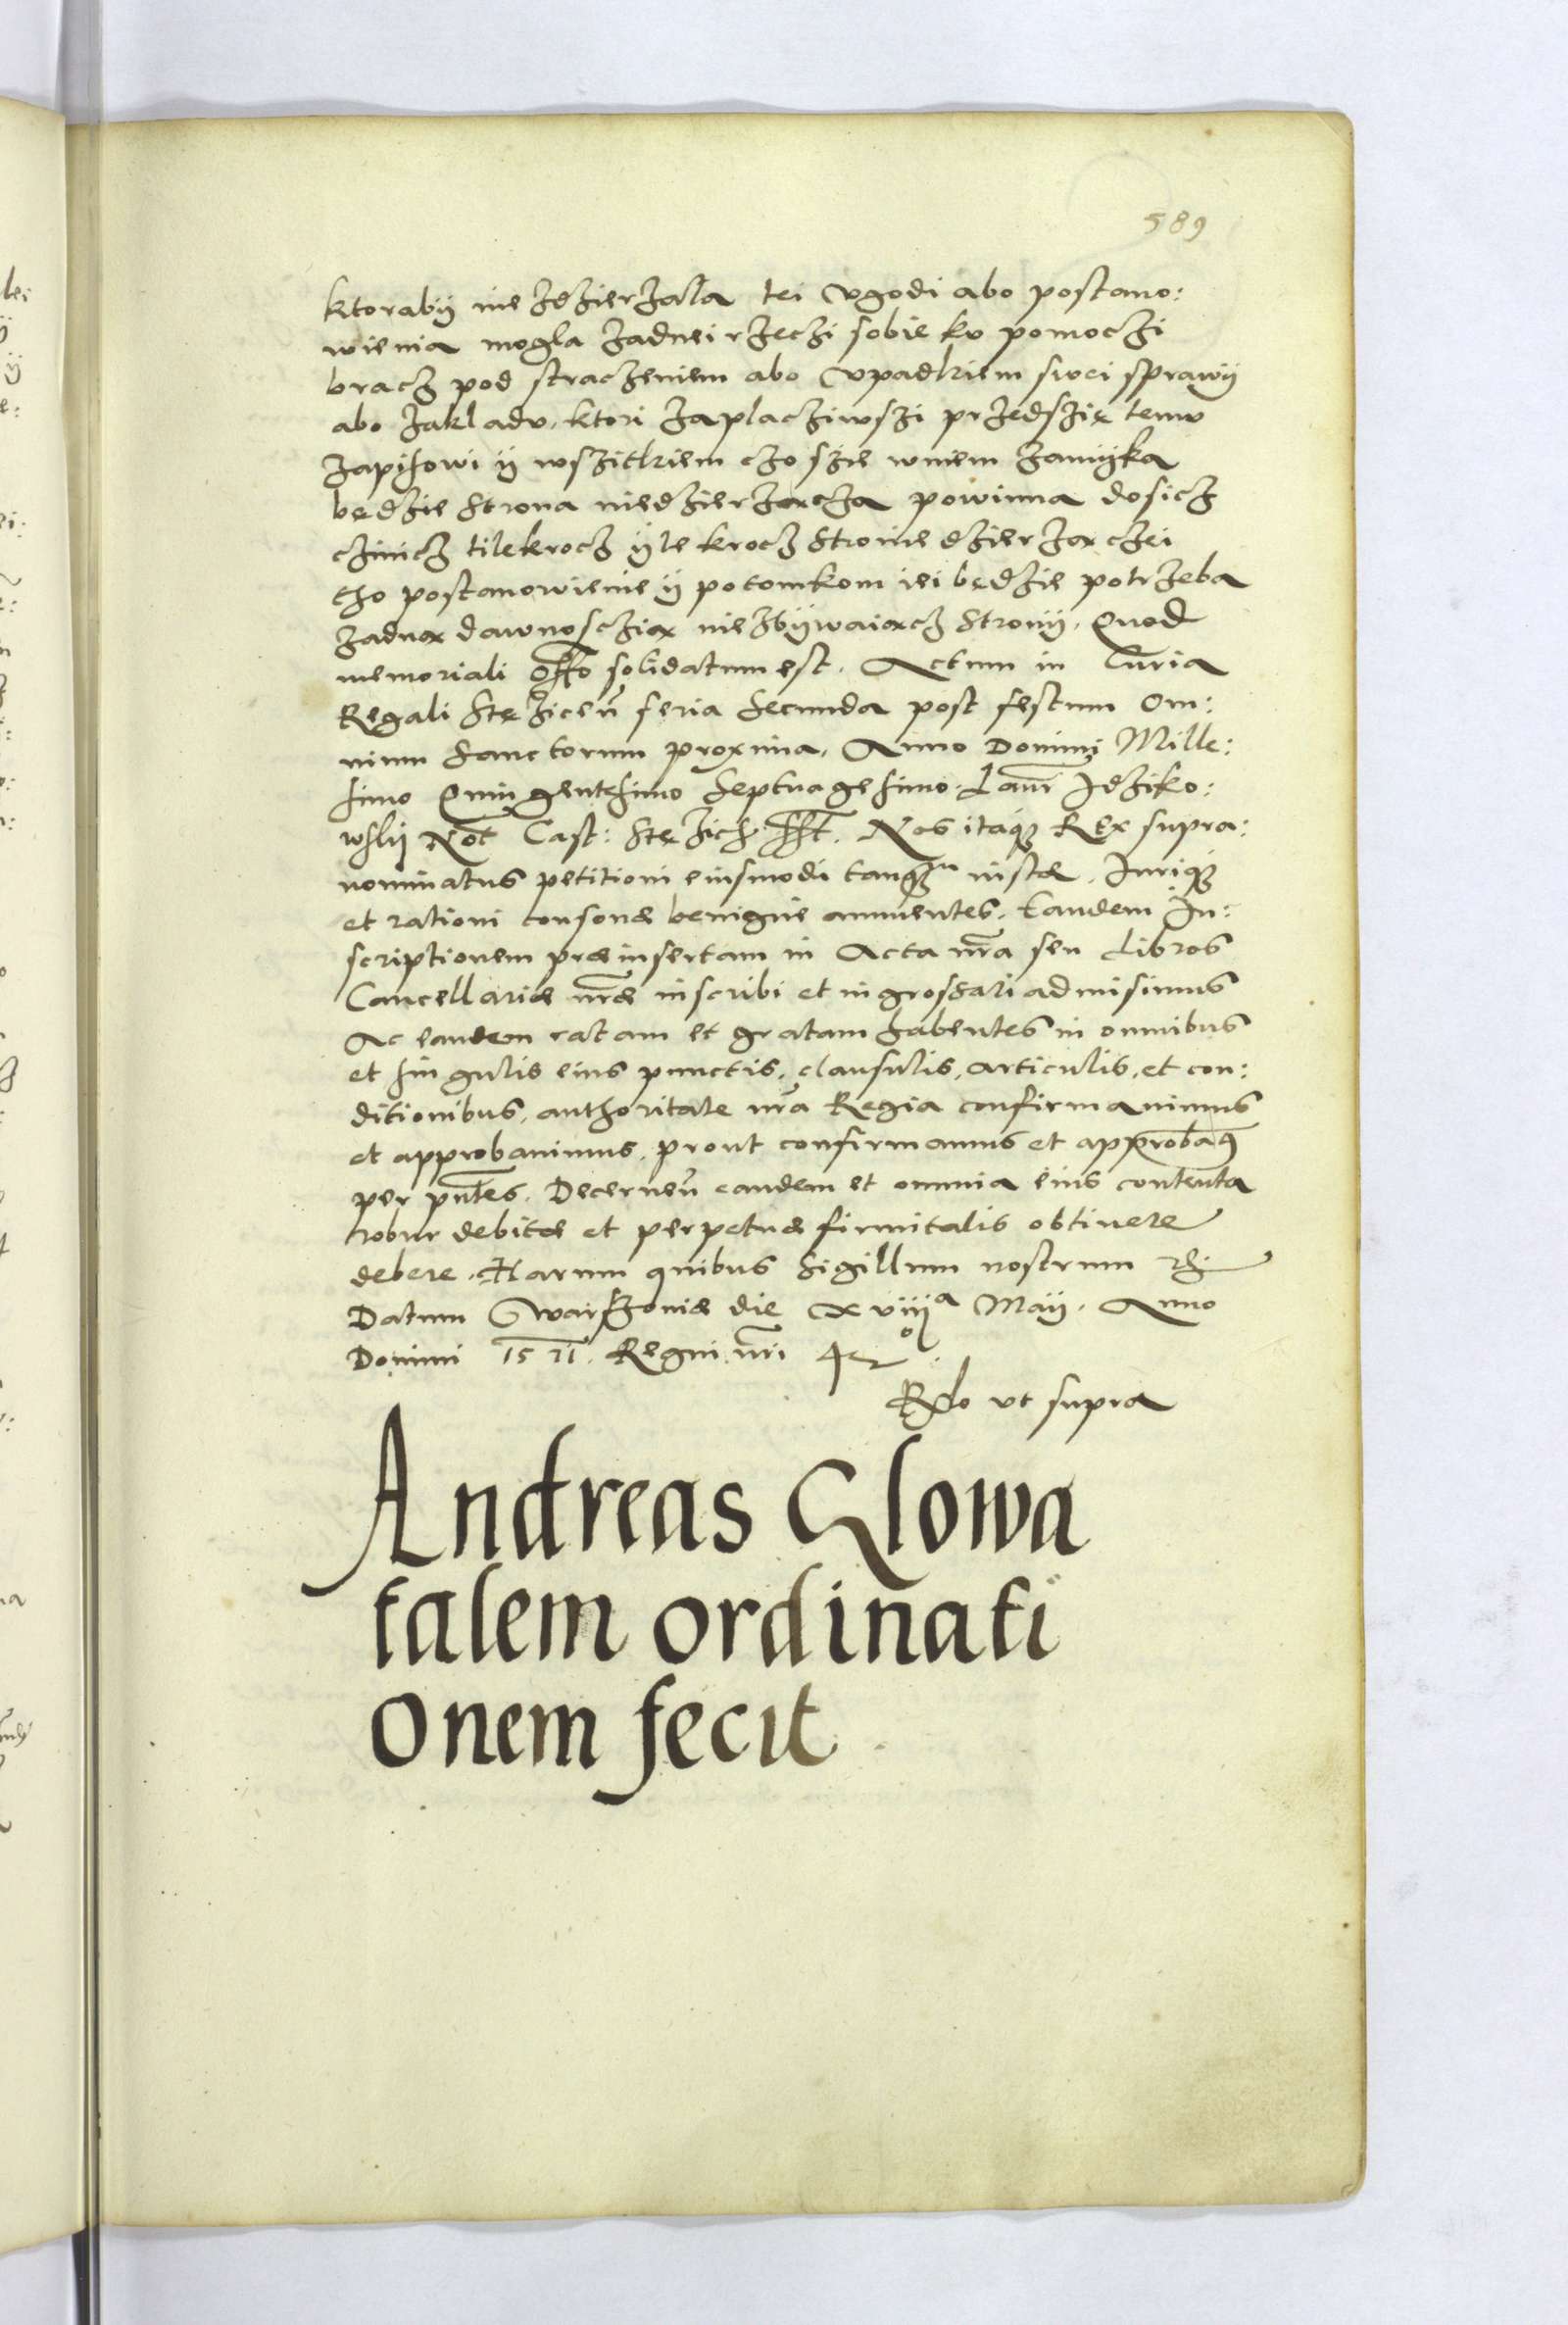 589
ktorabÿ nie zdzierzala tei vgodi abo postano:
wienia mogla zadnei rzeczi sobie kv pomoczi
bracz pod straczeniem abo vpadkiem swei sprawÿ
abo zakladv, ktori zaplacziwszi przedszię temv
zapisowi ÿ wszitkiem czo szie wniem zamÿka
będzie strona niedzierząca powinna dosicz
czinicz tilekrocz ÿle krocz stronie dzierzączei
tho postanowienie ÿ potomkom iei będzie potrzeba
zadną dawnosczią niezbÿwaiącz stronÿ. Quod
memoriali offo solidatum est. Actum in Curia
Regali Stęzicen̄ feria secunda post festum Om:
nium Sanctorum proxima, Anno Domini Mille:
simo Quingentesimo Septuagesimo. Laur̄ Idziko:
wskÿ Not̄ Cast: Stęzich: sst̄. Nos itaq₃ Rex supra:
nominatus petitioni eiusmodi tanq̄m iustæ, Juriq₃
et rationi consonæ benigne annuentes, tandem In:
scriptionem præinsertam in Acta nr̄a seu Libros
Cancellariæ nr̄æ inscribi et ingrossari admisimus
Ac eandem ratam et gratam habentes in omnibus
et singulis eius punctis, clausulis, articulis, et con:
ditionibus, authoritate nr̄a Regia confirmauimus
et approbauimus, prout confirmamus et approbam9
per pn̄tes. Decernen̄ eandem et omnia eius contenta
robur debitæ et perpetuæ firmitatis obtinere
debere. Harum quibus sigillum nostrum rz̄
Datum Warszoviæ die xviijª Maÿ. Anno
Domini 1571. Regni nr̄i 42°.
Relo vt supra
Andreas Glowa
talem ordinati
onem fecit